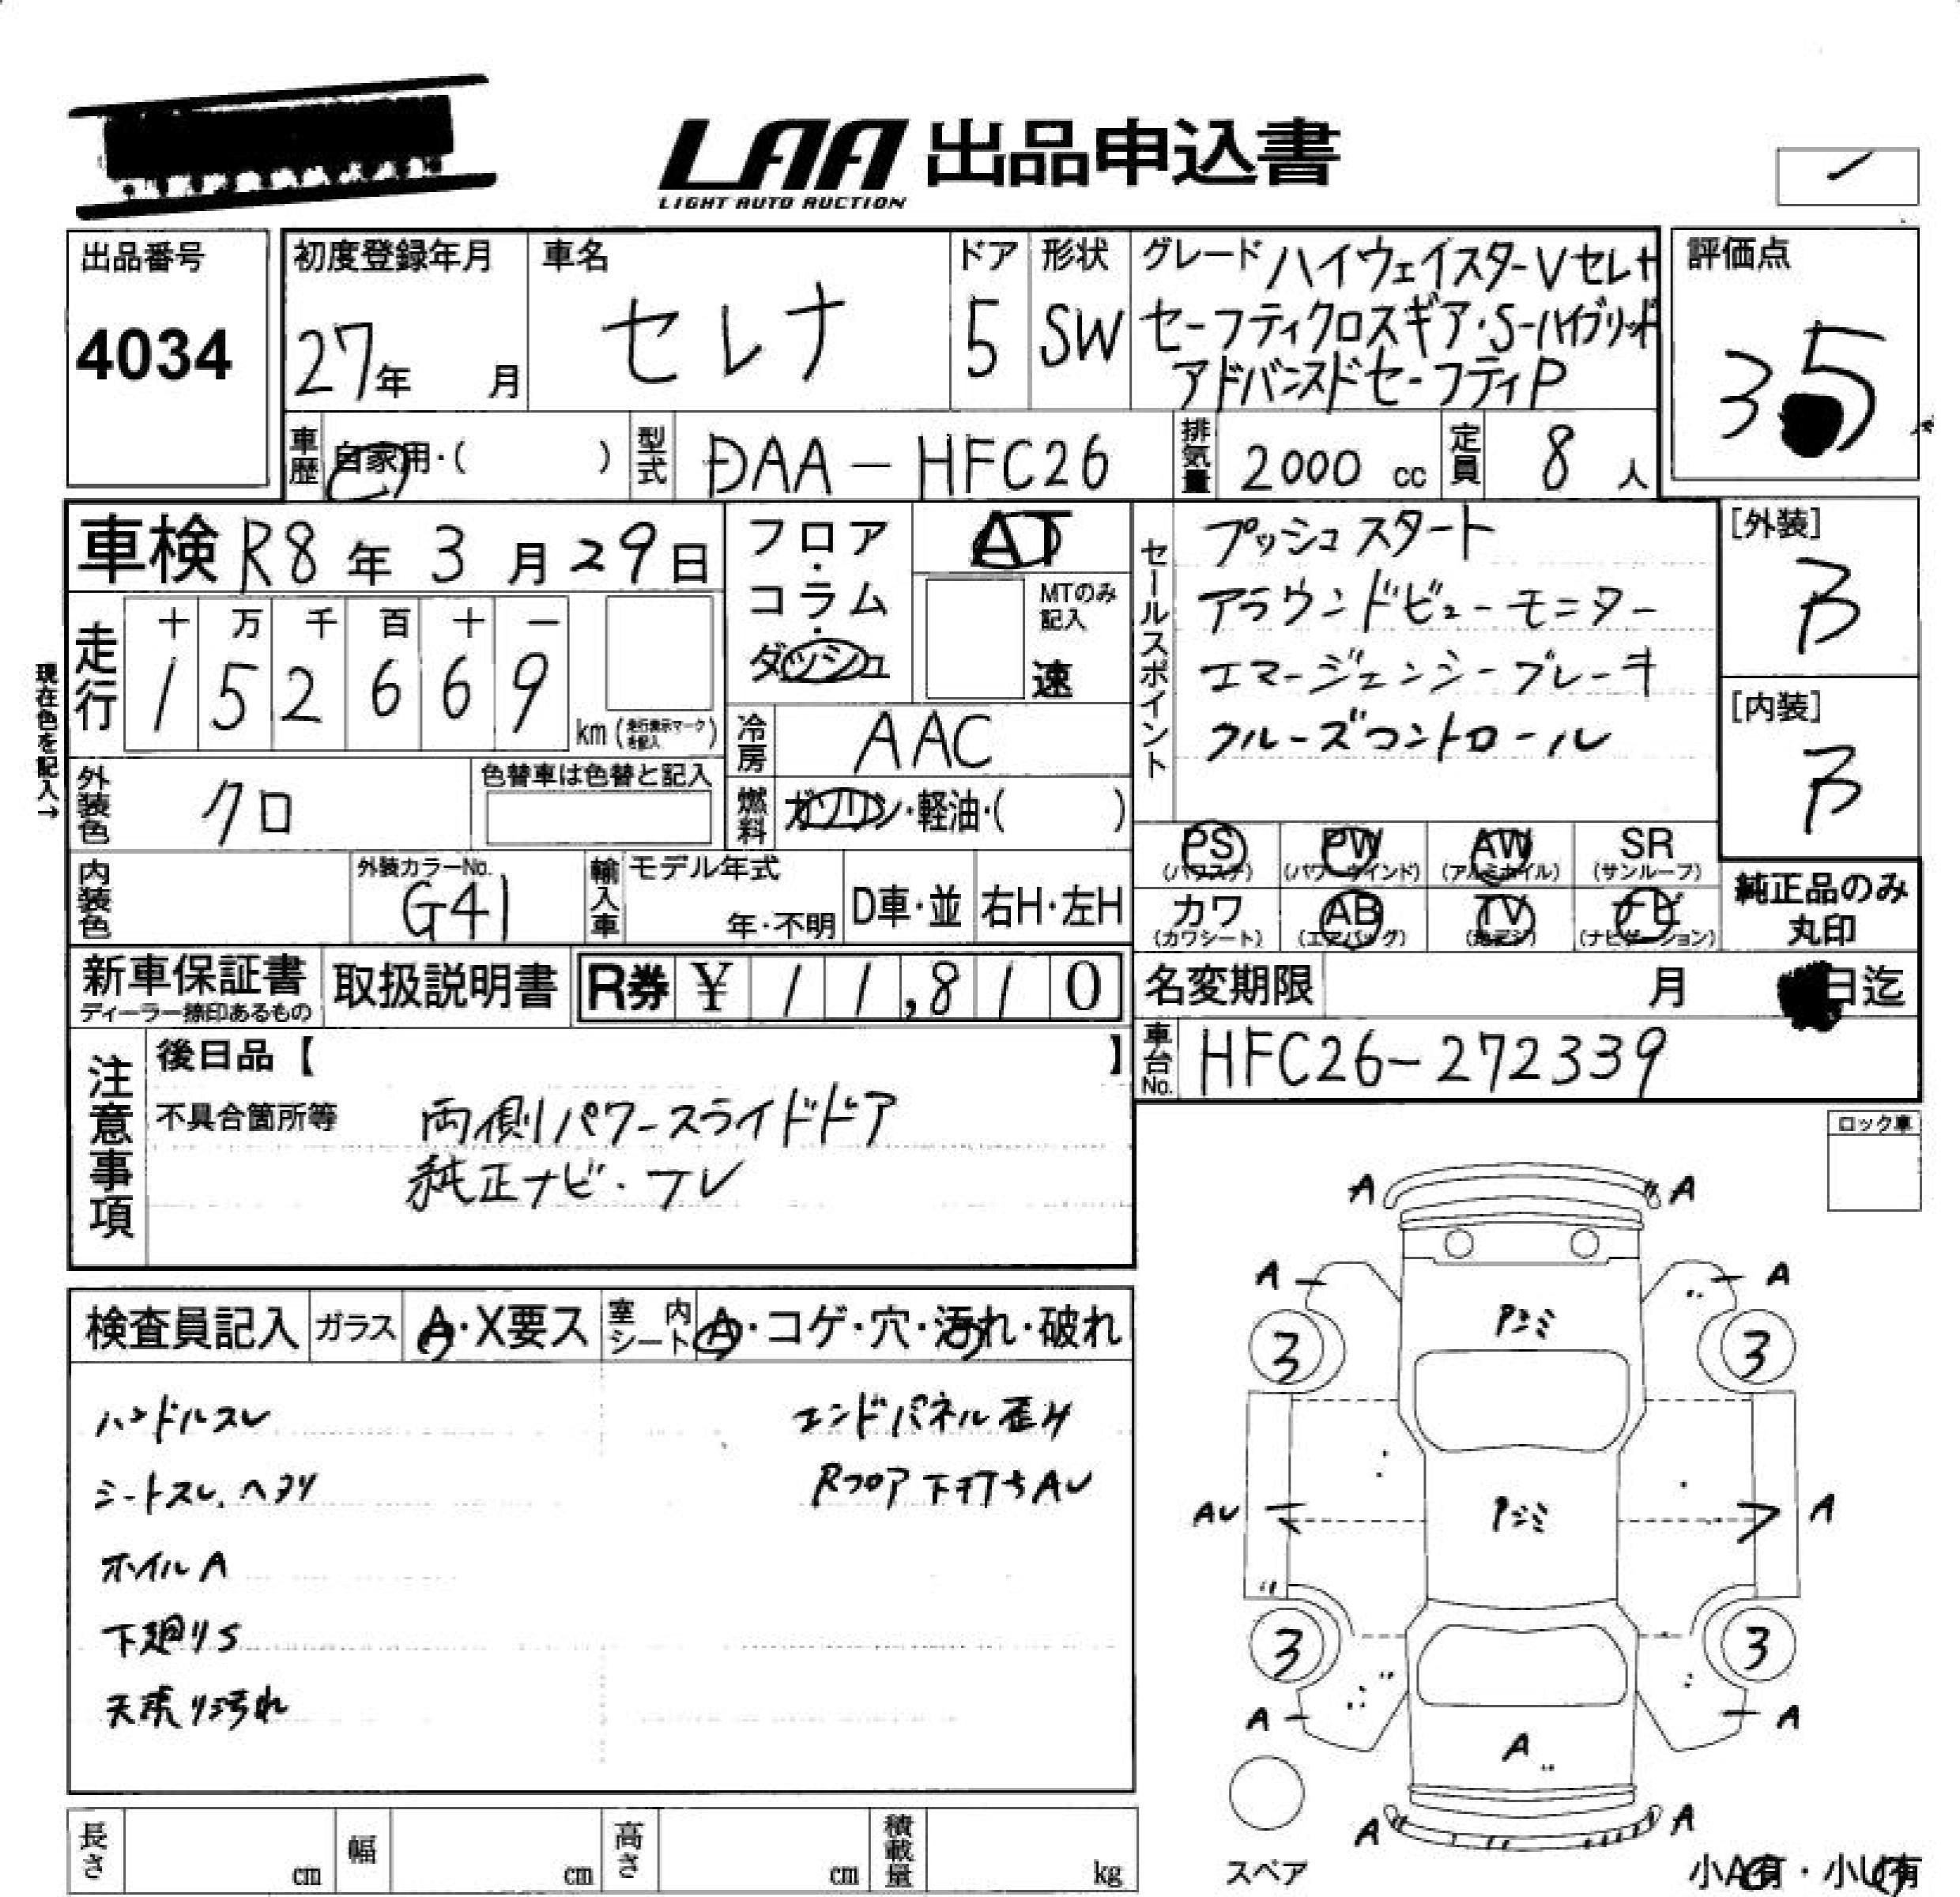 LAA 出品申込書
LIGHT AUTO AUCTION
出品番号
4034
初度登録年月
27年 月
車名
セレナ
ドア
5
形状
SW
グレード ハイウェイスターVセレナ
セーフティクロスギア・S-ハイブリッド
アドバンスドセーフティP
評価点
3.5
車歴 自家用・( )
型式 DAA-HFC26
排気量 2000 cc
定員 8 人
車検 R8年 3月 29日
走行
十 万 千 百 十 一
1 5 2 6 6 9
km (走行表示マークを記入)
現在色を記入→
フロア・コラム・ダッシュ
AT
MTのみ記入
速
冷房 AAC
燃料 ガソリン・軽油・( )
セールスポイント
プッシュスタート
アラウンドビューモニター
エマージェンシーブレーキ
クルーズコントロール
[外装]
B
[内装]
B
外装色 クロ
色替車は色替と記入
内装色
外装カラーNo.
G41
輸入車
モデル年式
年・不明
D車・並
右H・左H
PS (パワステ)
PW (パワーウインド)
AW (アルミホイル)
SR (サンルーフ)
カワ (カワシート)
AB (エアバッグ)
TV
ナビ (ナビゲーション)
純正品のみ
丸印
新車保証書
ディーラー捺印あるもの
取扱説明書
R券 ¥ 11,810
名変期限 月 日迄
車台No. HFC26-272339
注意事項
後日品【 】
不具合箇所等
両側パワースライドドア
純正ナビ・TV
ロック車
検査員記入
ガラス A・X要ス
室内シート A・コゲ・穴・汚れ・破れ
ハンドルスレ
シートスレ、ヘタリ
ホイルA
下廻りS
天張り汚れ
エンドパネル歪み
Rフロア下打ちAU
A A
A A
Pシミ
3 3
AU Pシミ A
3 3
A A
A
A A
スペア
小A有・小U有
長さ cm
幅 cm
高さ cm
積載量 kg